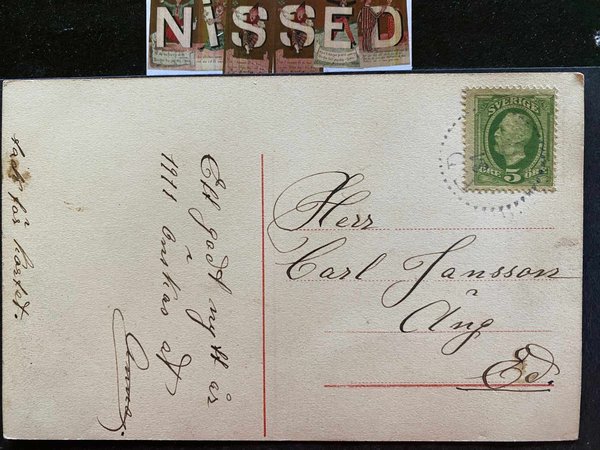 NISSED
SVERIGE
5
Ett godt nytt år
1911 önskas af
Anna.
tack för kortet.
Herr
Carl Jansson
Äng
Ed.